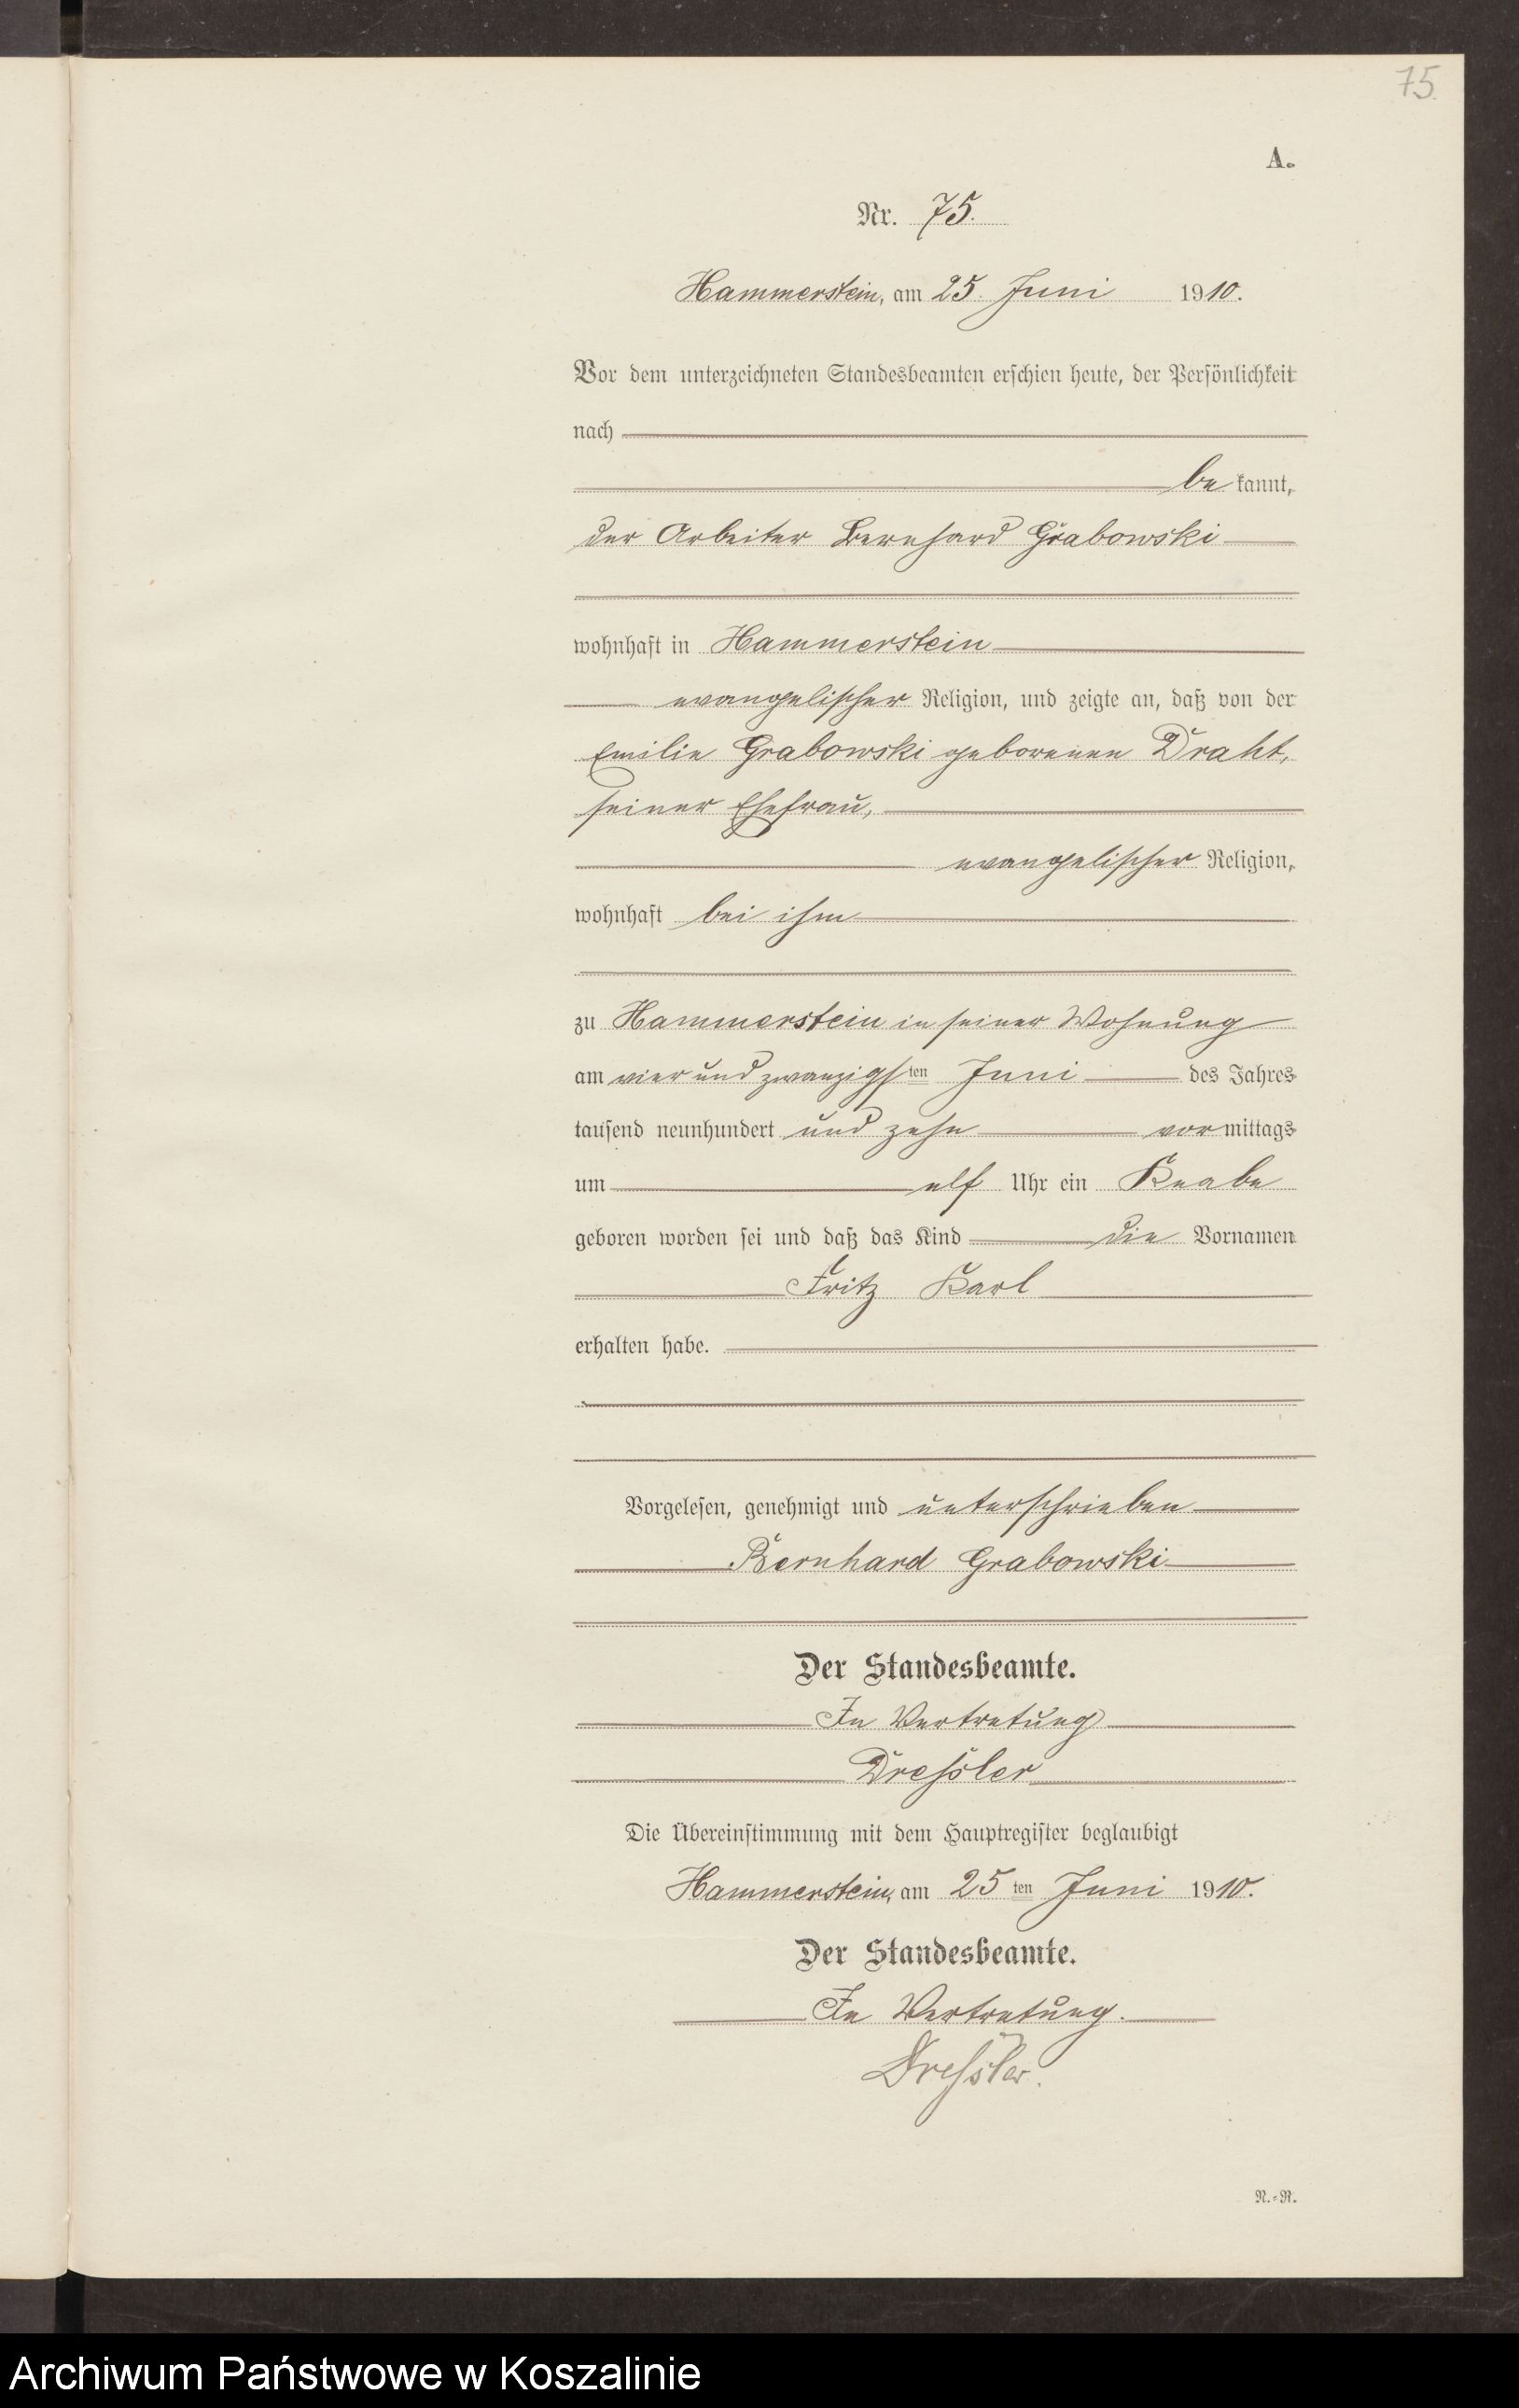 75
A.
Nr. 75.
Hammerstein, am 25. Juni 1910.
Vor dem unterzeichneten Standesbeamten erschien heute, der Persönlichkeit
nach
be kannt,
der Arbeiter Bernhard Grabowski
wohnhaft in Hammerstein
evangelischer Religion, und zeigte an, daß von der
Emilie Grabowski geborenen Draht,
seiner Ehefrau,
evangelischer Religion,
wohnhaft bei ihm
zu Hammerstein in seiner Wohnung
am vier und zwanzigsten Juni des Jahres
tausend neunhundert und zehn vormittags
um elf Uhr ein Knabe
geboren worden sei und daß das Kind die Vornamen
Fritz Karl
erhalten habe.
Vorgelesen, genehmigt und unterschrieben
Bernhard Grabowski
Der Standesbeamte.
In Vertretung
Dressler
Die Übereinstimmung mit dem Hauptregister beglaubigt
Hammerstein, am 25ten Juni 1910.
Der Standesbeamte.
In Vertretung.
Dressler.
N.=R.
Archiwum Państwowe w Koszalinie